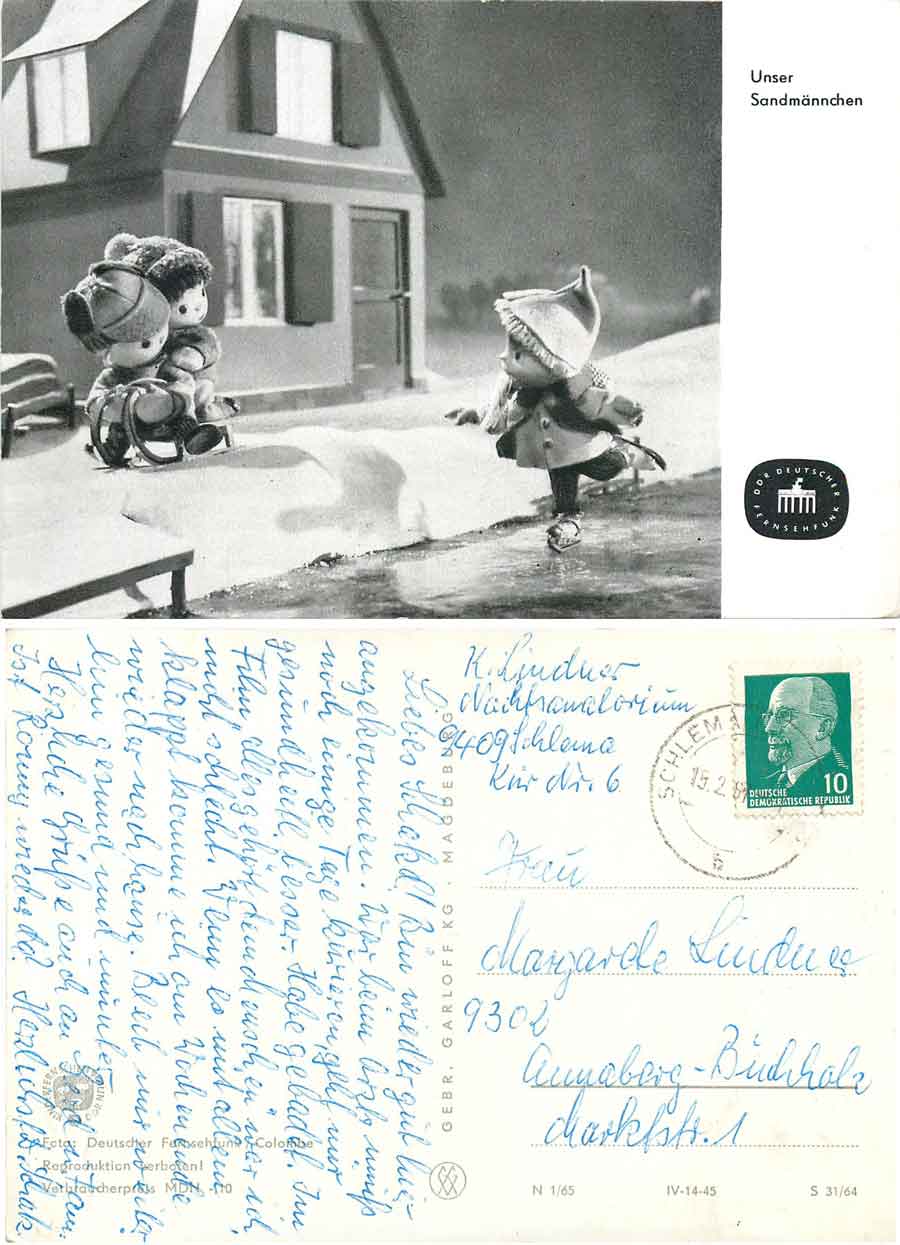 Unser
Sandmännchen
DDR DEUTSCHER
FERNSEHFUNK
K. Lindner
Nachtsanatorium
9409 Schlema
Kur Nr. 6
SCHLEMA
15.2.
10
DEUTSCHE
DEMOKRATISCHE REPUBLIK
Frau
Margarete Lindner
9302
Annaberg-Buchholz
Marktstr. 1
Liebes Schatzl! Bin wieder gut hier
angekommen. War beim Arzt muß
noch einige Tage kurieren, geht mir
gesundheitl. besser. Habe gebadet. Im
Film alles gehört dem Menschen war ich
nicht schlecht. Wenn es mit allem
klappt komme ich am Wochenende
wieder nach hause. Bleib mir weiter
hin gesund und munter.
Herzliche Grüße auch an
Ist Konny wieder da? Herzlichst
GEBR. GARLOFF KG · MAGDEBURG
Foto: Deutscher Fernsehfunk, Colombe
Reproduktion verboten!
Verbraucherpreis MDN -,10
N 1/65
IV-14-45
S 31/64